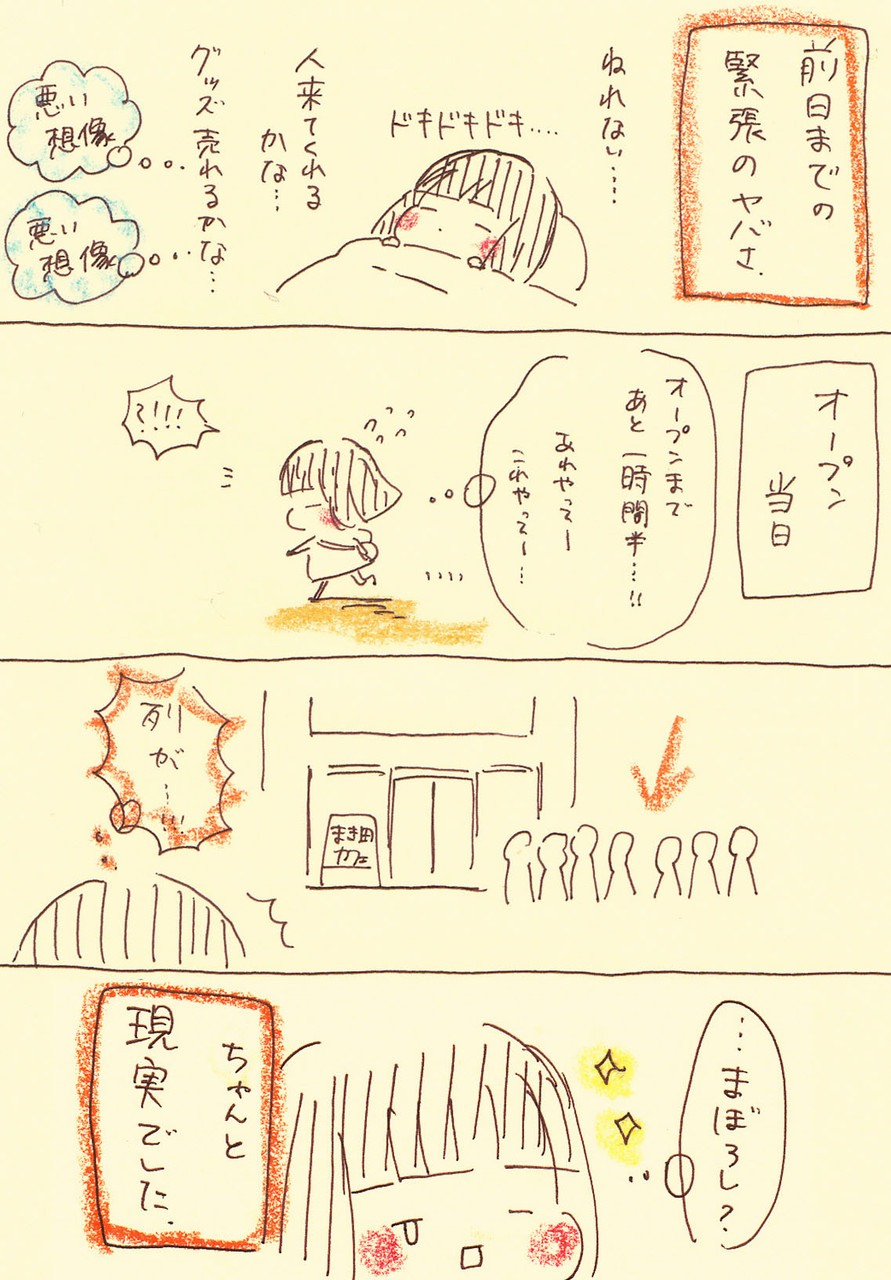 前日までの
緊張のヤバさ.
ねれない……
ドキドキドキ....
人来てくれる
かな…
グッズ売れるかな…
悪い
想像
悪い
想像
オープン
当日
オープンまで
あと一時間半…!!
あれやってー
これやってー…
?!!!
まき田
カフェ
列が…!!!
…まぼろし?
ちゃんと
現実でした.